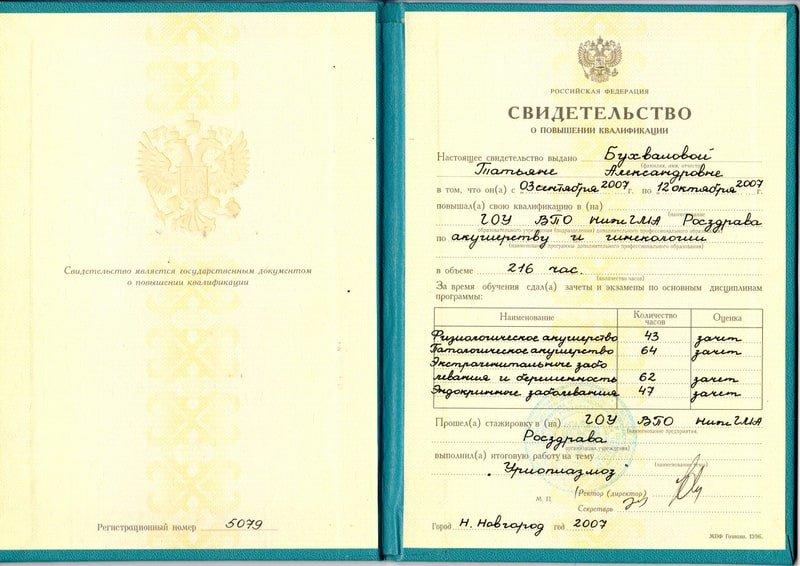 Свидетельство является государственным документом
о повышении квалификации
Регистрационный номер 5079
РОССИЙСКАЯ ФЕДЕРАЦИЯ
СВИДЕТЕЛЬСТВО
О ПОВЫШЕНИИ КВАЛИФИКАЦИИ
Настоящее свидетельство выдано Бухваловой
(фамилия, имя, отчество)
Татьяне Александровне
в том, что он(а) с 03 сентября 2007 г. по 12 октября 2007 г.
повышал(а) свою квалификацию в (на)
(наименование
ГОУ ВПО НижГМА Росздрава
образовательного учреждения (подразделения) дополнительного профессионального образования)
по акушерству и гинекологии
(наименование программы дополнительного профессионального образования)
в объеме 216 час.
(количество часов)
За время обучения сдал(а) зачеты и экзамены по основным дисциплинам
программы:
Наименование Количество часов Оценка
Физиологическое акушерство 43 зачет
Патологическое акушерство 64 зачет
Экстрагенитальные забо
левания и беременность 62 зачет
Эндокринные заболевания 47 зачет
Прошел(а) стажировку в (на) ГОУ ВПО НижГМА
(наименование предприятия,
Росздрава
организации, учреждения)
выполнил(а) итоговую работу на тему
(наименование темы)
Уриоплазмоз
(Ректор (директор)
М. П.
Секретарь
Город Н. Новгород год 2007
МПФ Гознака. 1996.